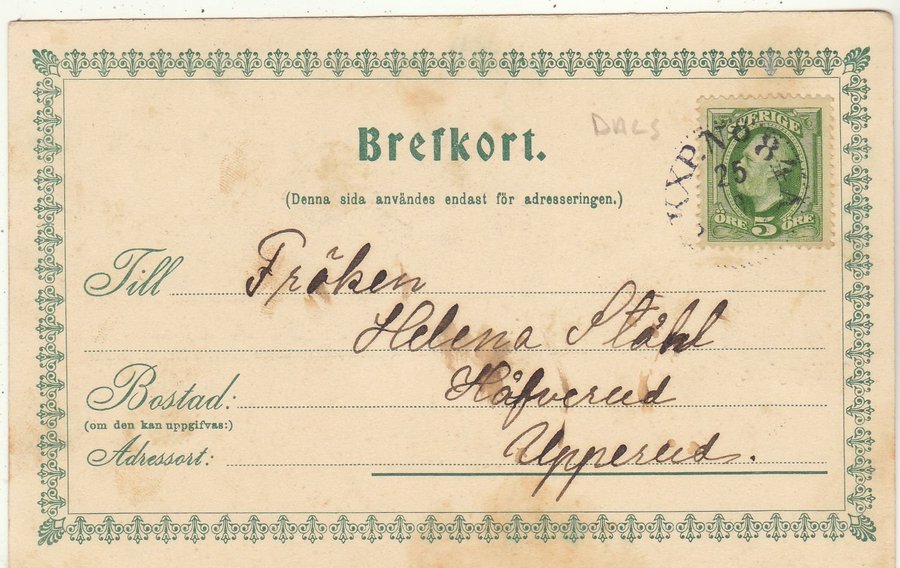 Brefkort.
DALS
(Denna sida användes endast för adresseringen.)
SVERIGE
ÖRE 5 ÖRE
PKXP. Nº 84 A
25
Till Fröken
Helena Ståhl
Bostad: Håfverud
(om den kan uppgifvas:)
Adressort: Upperud.